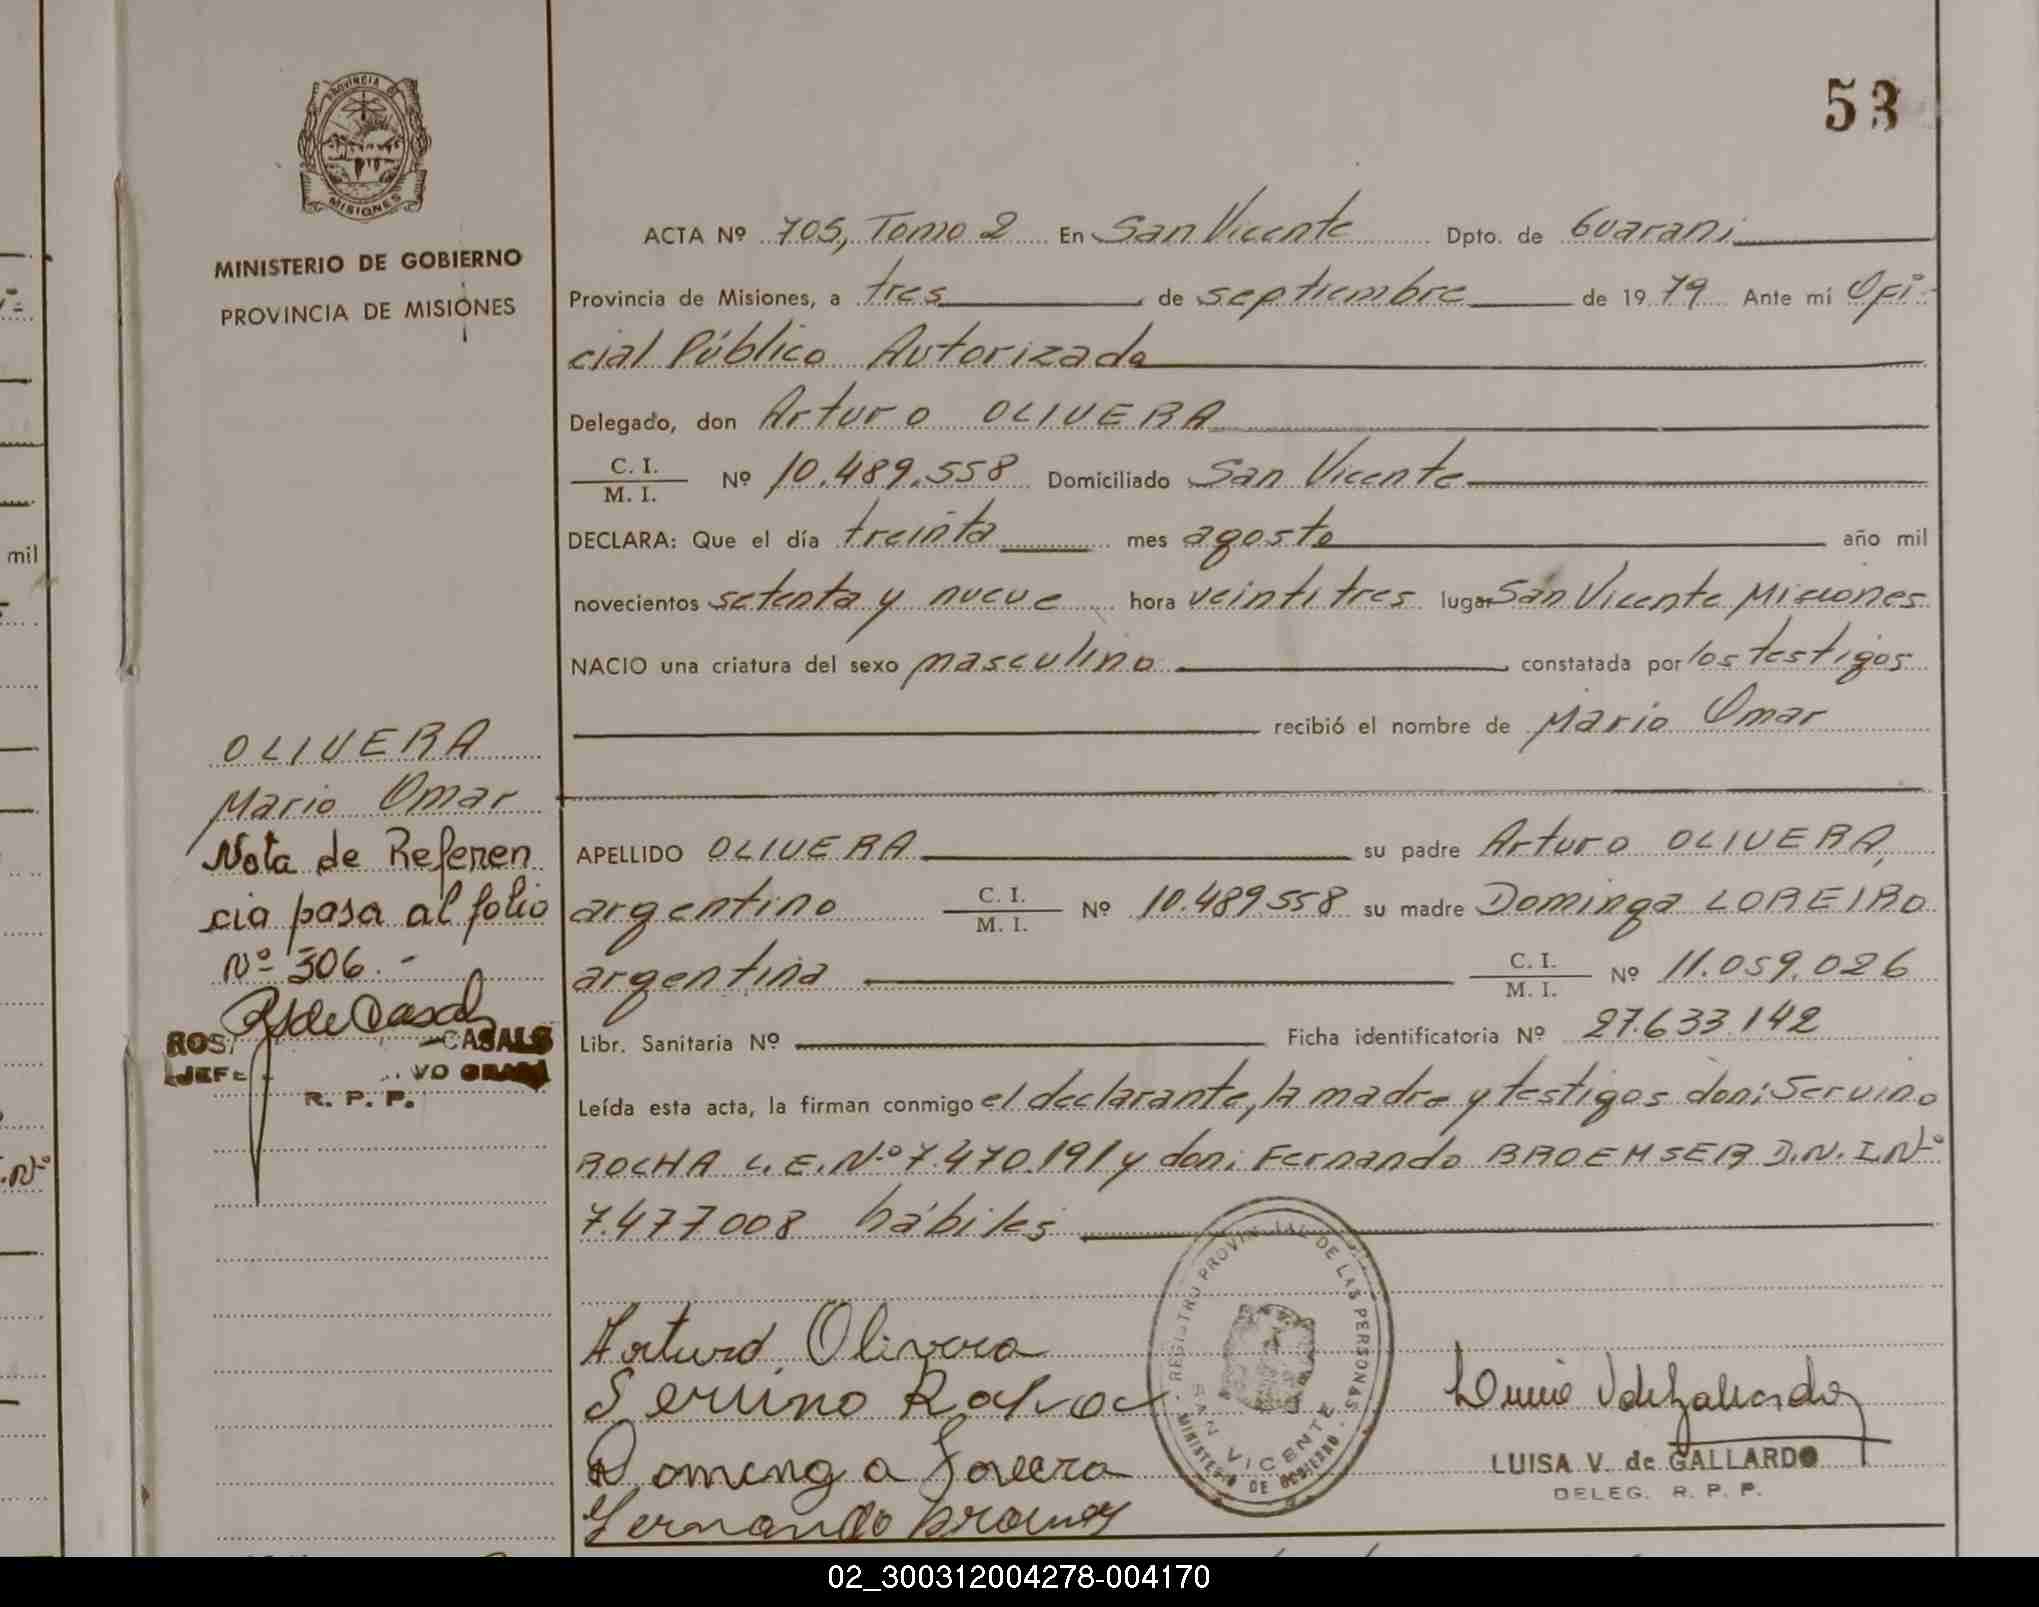 53
PROVINCIA DE
MISIONES
MINISTERIO DE GOBIERNO
PROVINCIA DE MISIONES
ACTA Nº 705, Tomo 2 En San Vicente Dpto. de Guarani
Provincia de Misiones, a tres de septiembre de 1979 Ante mí Ofi-
cial Público Autorizado
Delegado, don Arturo OLIVERA
C. I.
M. I. Nº 10.489.558 Domiciliado San Vicente
DECLARA: Que el día treinta mes agosto año mil
novecientos setenta y nueve hora veintitres lugar San Vicente Misiones
NACIO una criatura del sexo masculino constatada por los testigos
recibió el nombre de Mario Omar
APELLIDO OLIVERA su padre Arturo OLIVERA,
argentino C. I. M. I. Nº 10.489.558 su madre Dominga LOREIRO
argentina C. I. M. I. Nº 11.059.026
Libr. Sanitaria Nº Ficha identificatoria Nº 27.633.142
Leída esta acta, la firman conmigo el declarante, la madre y testigos don: Servino
ROCHA L.E.Nº 7.470.191 y don: Fernando BROEMSER D.N.I.Nº
7.477.008 hábiles
OLIVERA
Mario Omar
Nota de Referen
cia pasa al folio
Nº 306.-
CASALS
R. P. P.
Arturo Olivera
Servino
Dominga
Fernando
REGISTRO PROVINCIAL DE LAS PERSONAS
SAN VICENTE
MINISTERIO DE GOBIERNO
LUISA V. de GALLARDO
DELEG. R. P. P.
mil
02_300312004278-004170